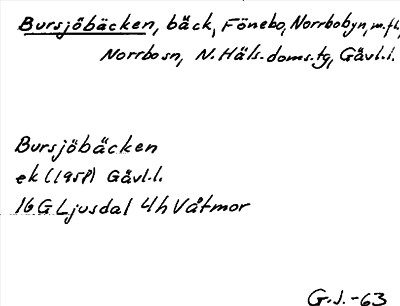 Bursjöbäcken, bäck, Fönebo, Norrbobyn, m.fl.,
Norrbo sn, N. Häls. doms. tg, Gävl. l.
Bursjöbäcken
ek (1958) Gävl. l.
16 G Ljusdal 4h Våtmor
G. J. -63